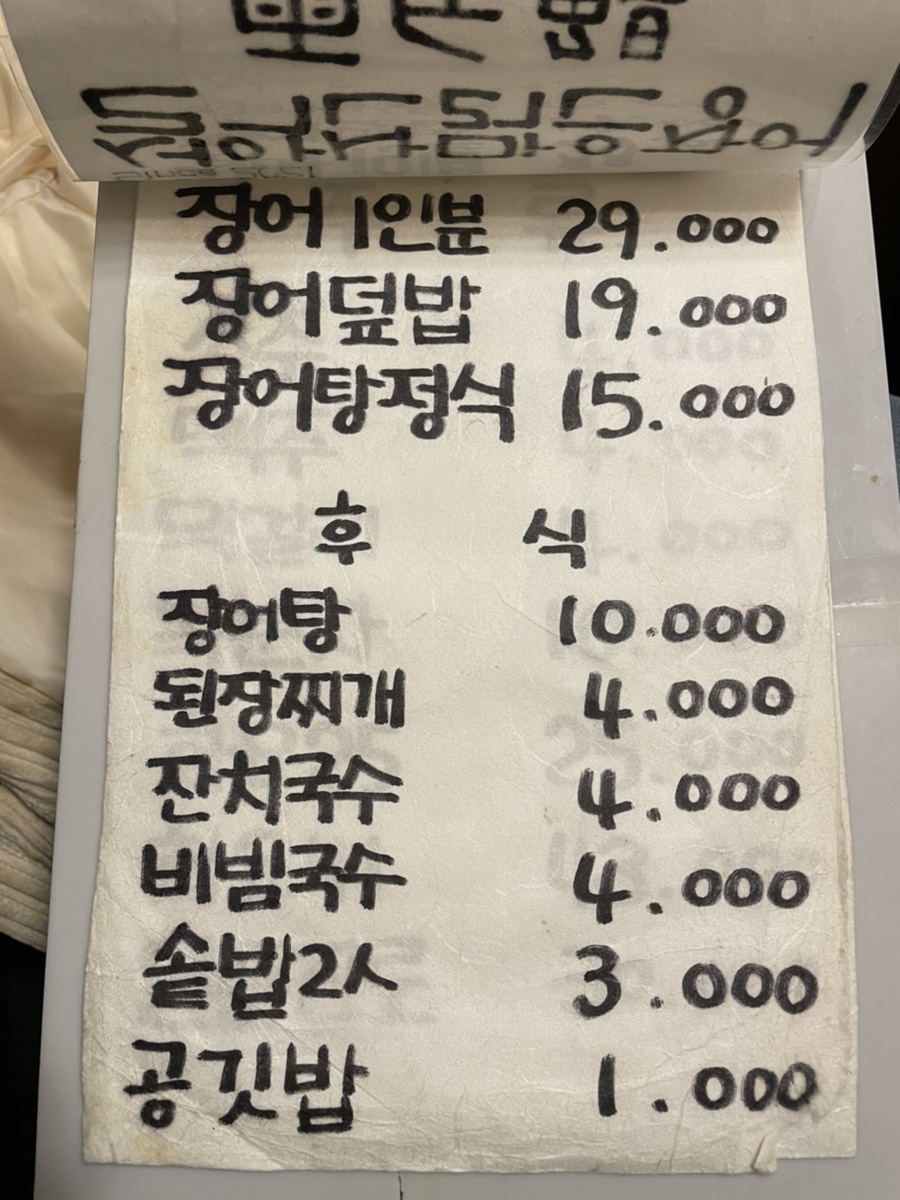 since 2021
장어 1인분 29.000
장어덮밥 19.000
장어탕정식 15.000
후 식
장어탕 10.000
된장찌개 4.000
잔치국수 4.000
비빔국수 4.000
솥밥2人 3.000
공깃밥 1.000